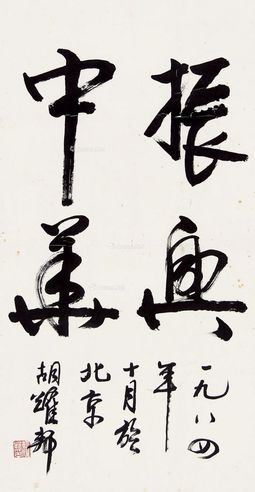 振興
中華
一九八四
年
十月於
北京
胡耀邦